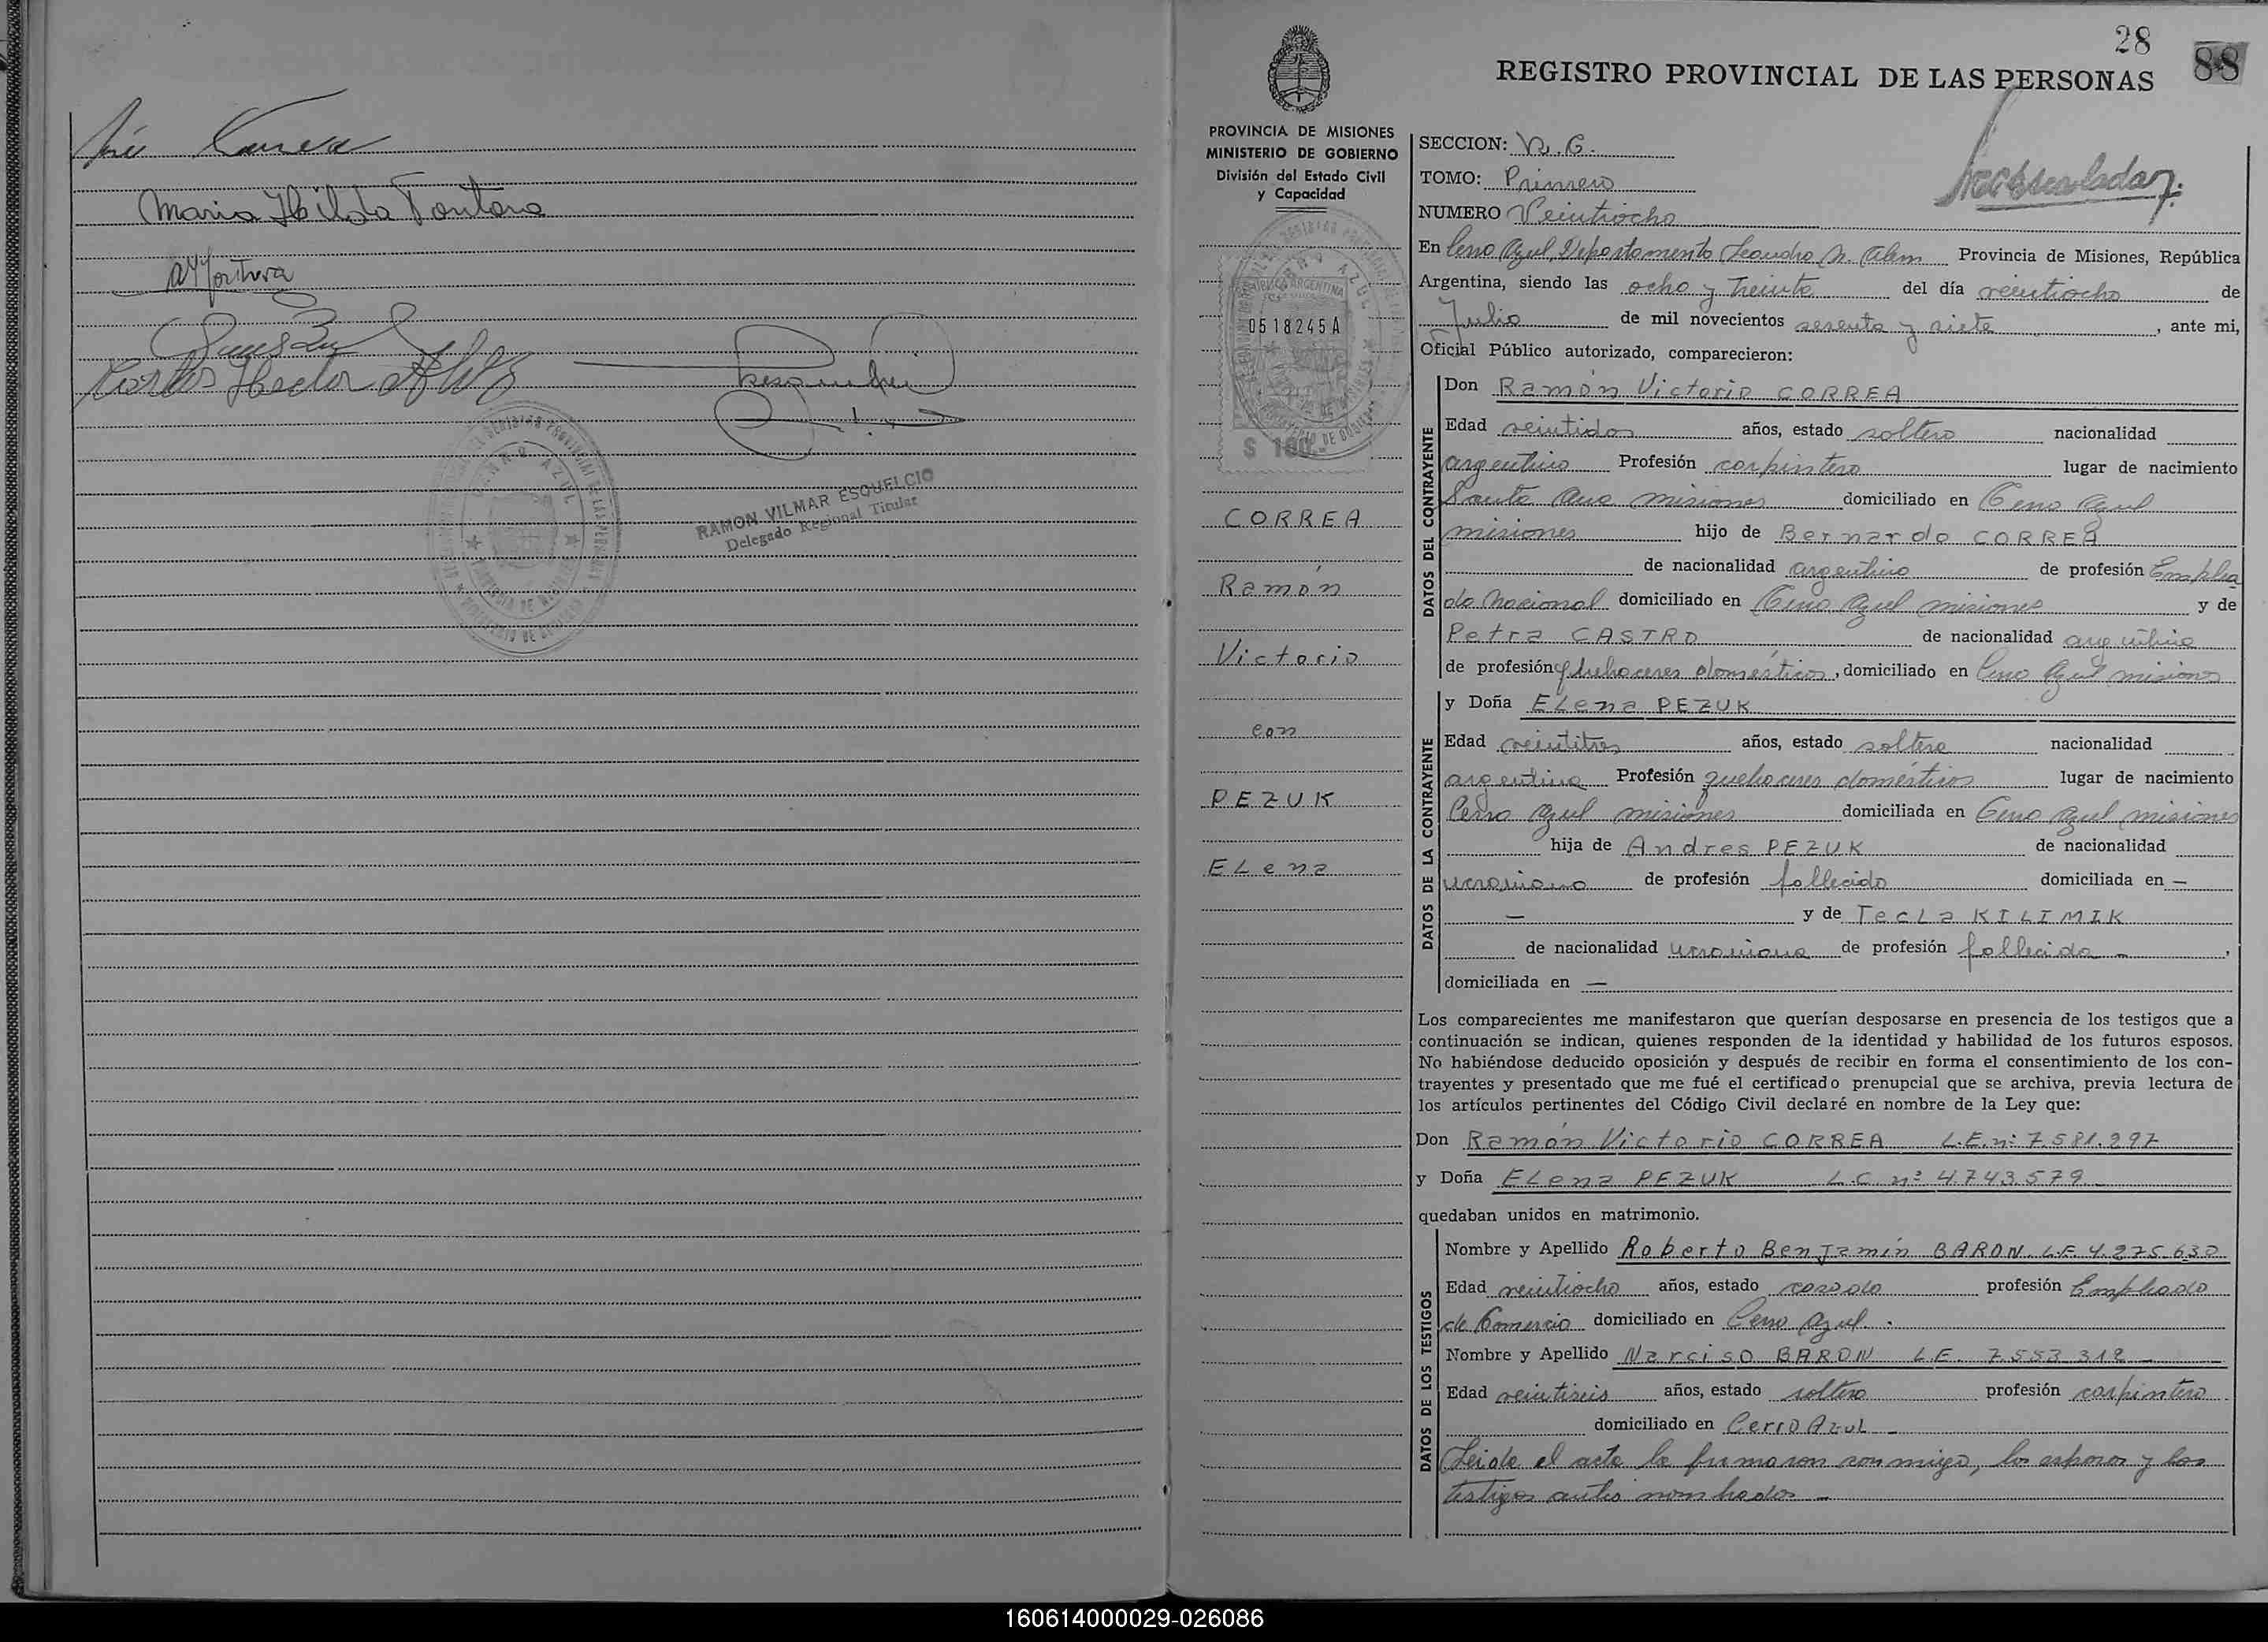 Maria Hilda Fontana
RAMON VILMAR ESQUELCIO
Delegado Regional Titular
28
88
REGISTRO PROVINCIAL DE LAS PERSONAS
PROVINCIA DE MISIONES
MINISTERIO DE GOBIERNO
División del Estado Civil
y Capacidad
0518245A
$ 100.-
CORREA
Ramón
Victorio
con
PEZUK
ELena
SECCION:
TOMO: Primero
NUMERO Veintiocho
En Cerro Azul, Departamento Leandro N. Alem Provincia de Misiones, República
Argentina, siendo las ocho y treinta del día veintiocho de
Julio de mil novecientos sesenta y siete, ante mi,
Oficial Público autorizado, comparecieron:
DATOS DEL CONTRAYENTE
Don Ramón Victorio CORREA
Edad veintidos años, estado soltero nacionalidad
argentino Profesión carpintero lugar de nacimiento
Santa Ana misiones domiciliado en Cerro Azul
misiones hijo de Bernardo CORREA
de nacionalidad argentino de profesión Emplea
do Nacional domiciliado en Cerro Azul misiones y de
Petra CASTRO de nacionalidad argentina
de profesión quehaceres domésticos, domiciliado en Cerro Azul misiones
DATOS DE LA CONTRAYENTE
y Doña ELena PEZUK
Edad veintitres años, estado soltera nacionalidad
argentina Profesión quehaceres domésticos lugar de nacimiento
Cerro Azul misiones domiciliada en Cerro Azul misiones
hija de Andres PEZUK de nacionalidad
ucraniano de profesión fallecido domiciliada en —
— y de TecLa KILIMIK
de nacionalidad ucraniana de profesión fallecida —,
domiciliada en —
Los comparecientes me manifestaron que querían desposarse en presencia de los testigos que a
continuación se indican, quienes responden de la identidad y habilidad de los futuros esposos.
No habiéndose deducido oposición y después de recibir en forma el consentimiento de los con-
trayentes y presentado que me fué el certificado prenupcial que se archiva, previa lectura de
los artículos pertinentes del Código Civil declaré en nombre de la Ley que:
Don Ramón Victorio CORREA L.E.nº 7.581.297
y Doña ELena PEZUK L.C. nº 4.743.579
quedaban unidos en matrimonio.
DATOS DE LOS TESTIGOS
Nombre y Apellido Roberto Benjamín BARON L.E. 4.275.630
Edad veintiocho años, estado casado profesión Empleado
de Comercio domiciliado en Cerro Azul.
Nombre y Apellido Narciso BARON L.E. 7.553.312
Edad veintiseis años, estado soltero profesión carpintero
domiciliado en Cerro AzuL
Leida el acta la firmaron conmigo, los esposos y los
testigos antes nombrados —
160614000029-026086